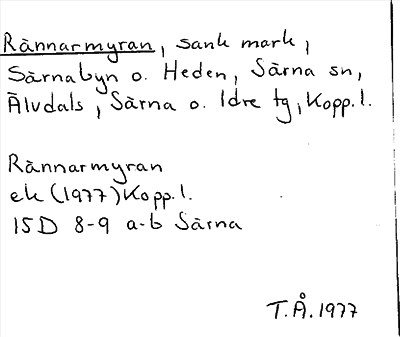 Rännarmyran, sank mark,
Särnabyn o. Heden, Särna sn,
Älvdals, Särna o. Idre tg, Kopp. l.
Rännarmyran
ek (1977) Kopp. l.
15D 8-9 a-b Särna
T.Å. 1977